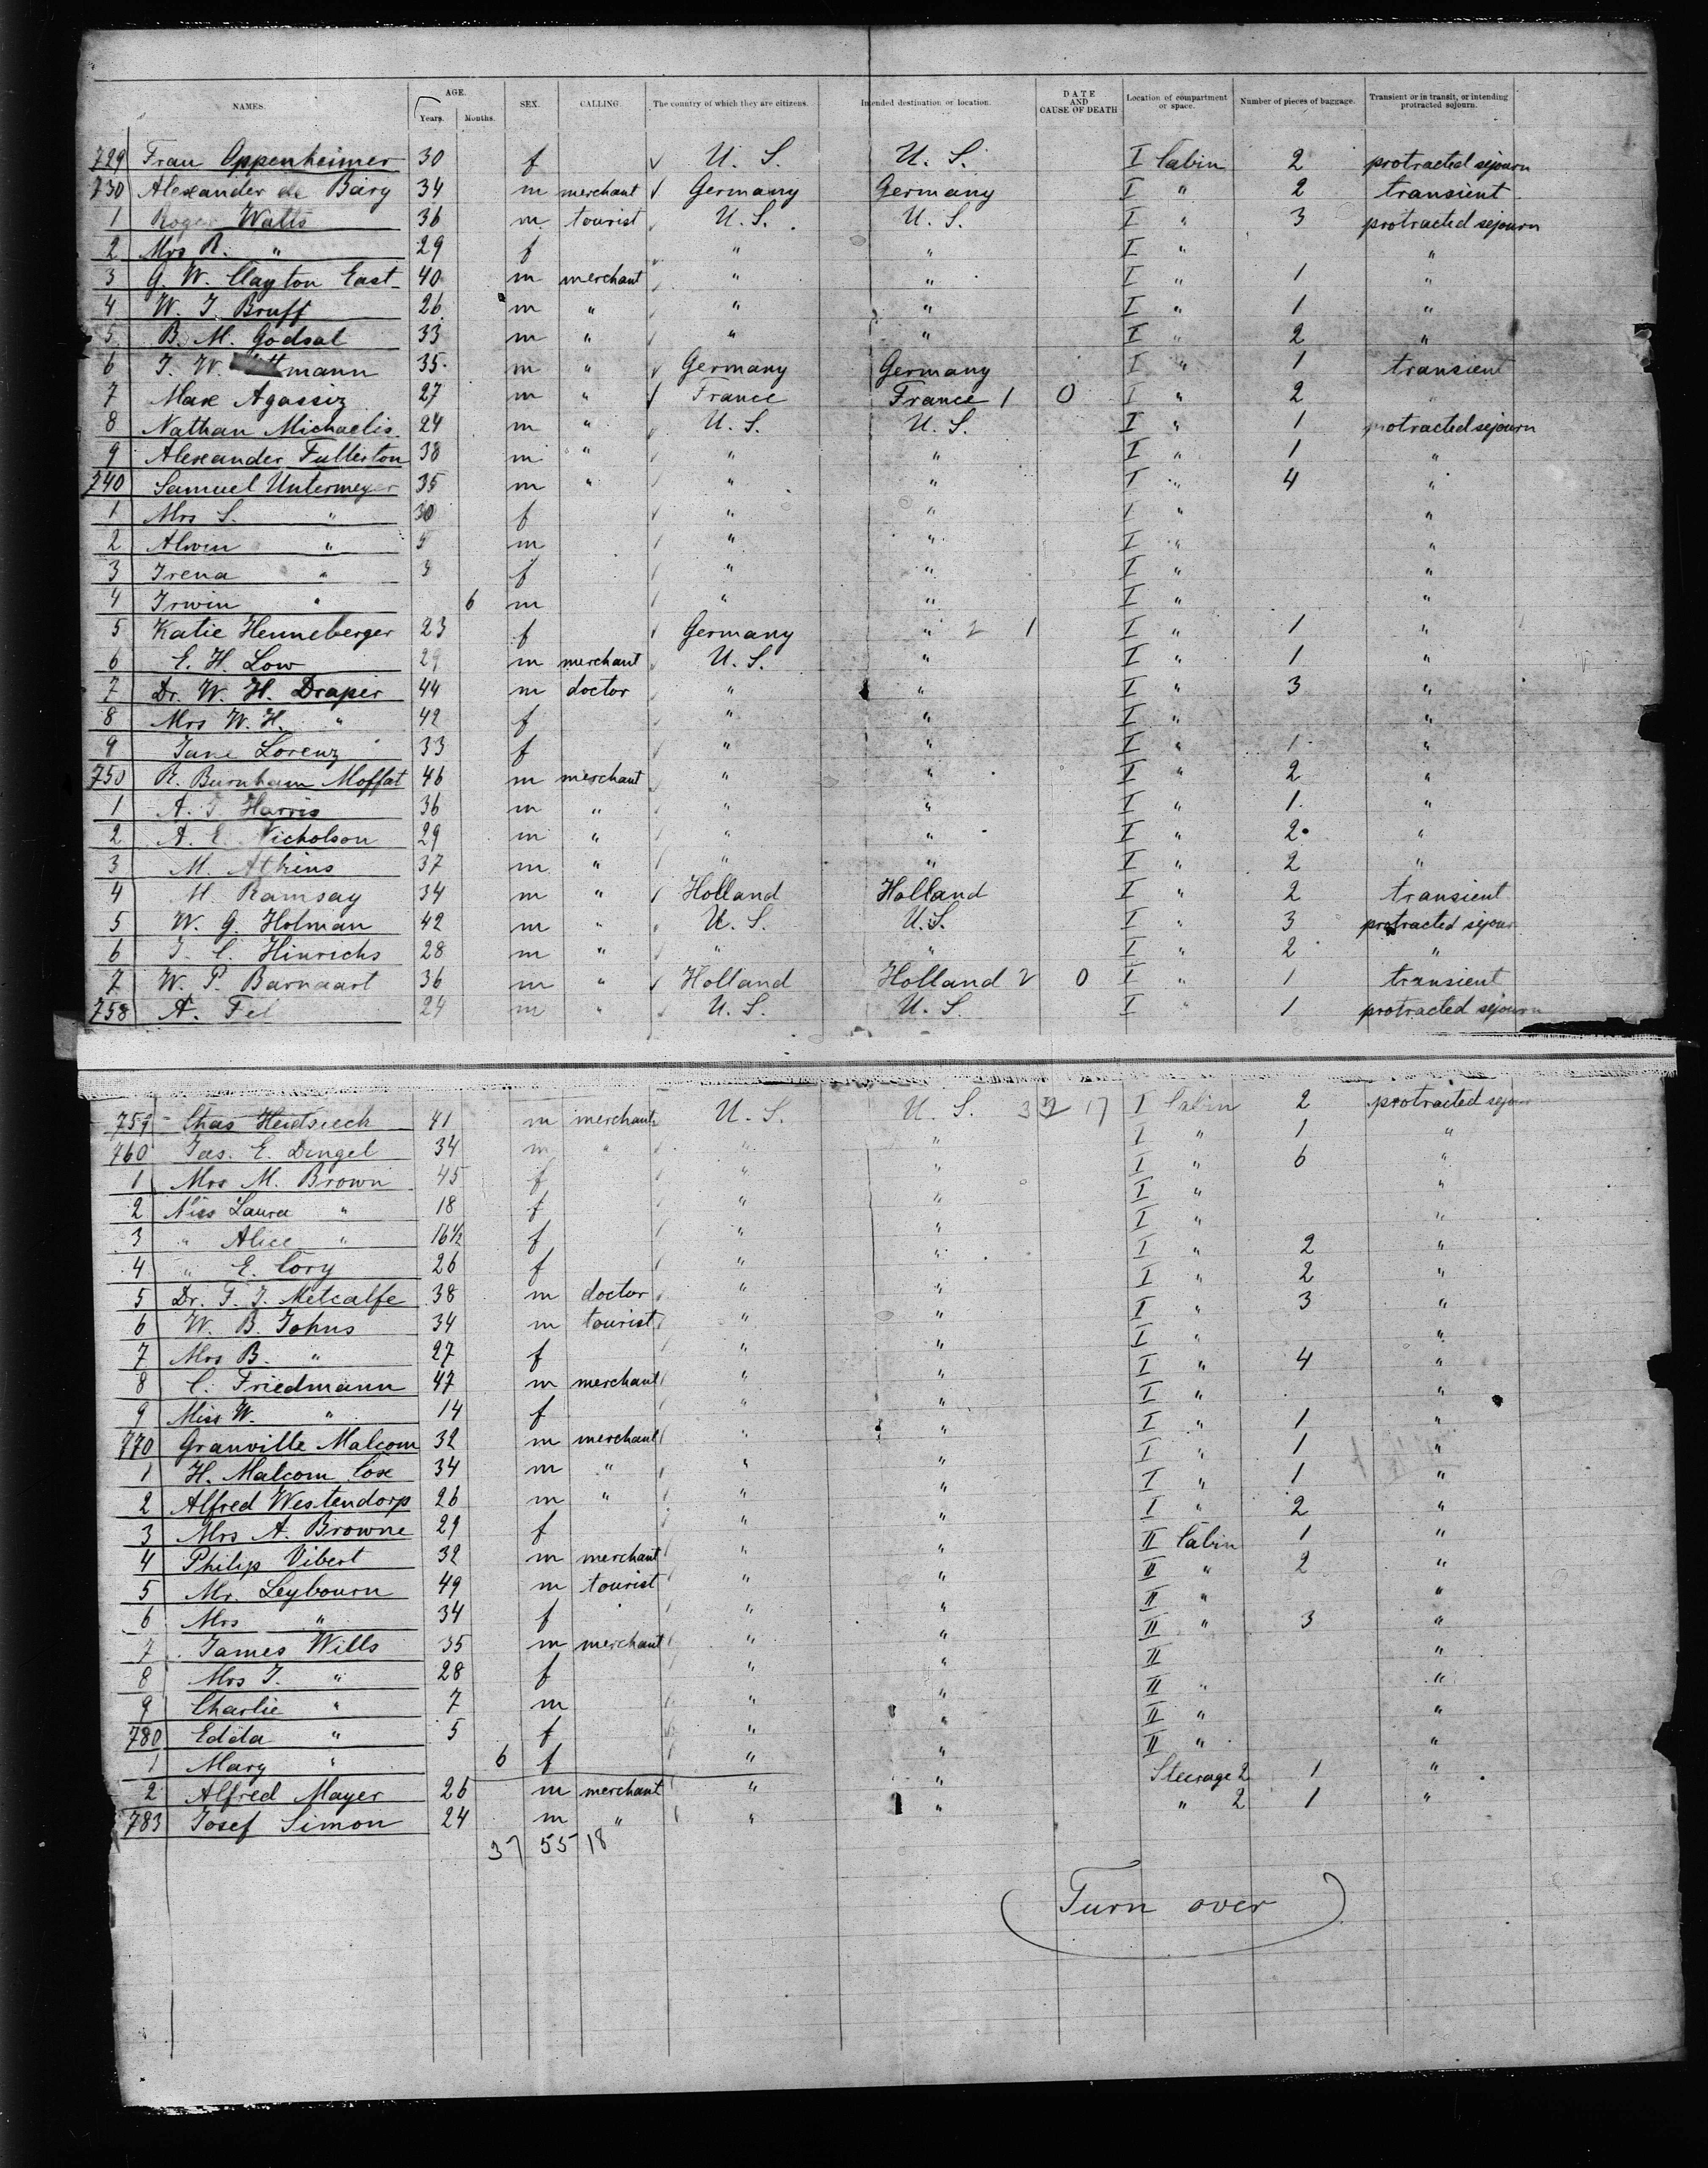 NAMES. AGE. Years. Months. SEX. CALLING. The country of which they are citizens. Intended destination or location. DATE AND CAUSE OF DEATH Location of compartment or space. Number of pieces of baggage. Transient or in transit, or intending protracted sojourn.
729 Frau Oppenheimer 30 f U. S. U. S. I Cabin 2 protracted sejourn
730 Alexander de Bary 34 m merchant Germany Germany I " 2 transient
1 Roger Watts 36 m tourist U. S. U. S. I " 3 protracted sejourn
2 Mrs R. " 29 f " " I " "
3 G. W. Clayton East 40 m merchant " " I " 1 "
4 W. J. Bruff 26 m " " " I " 1 "
5 B. M. Godsal 33 m " " " I " 2 "
6 J. W. mann 35 m " Germany Germany I " 1 transient
7 Max Agassiz 27 m " France France 1 0 I " 2 "
8 Nathan Michaelis 24 m " U. S. U. S. I " 1 protracted sejourn
9 Alexander Fullerton 38 m " " " I " 1 "
740 Samuel Untermeyer 35 m " " " I " 4 "
1 Mrs S. " 30 f " " I " "
2 Alwin " 5 m " " I " "
3 Irena " 3 f " " I " "
4 Irwin " 6 m " " I " "
5 Katie Henneberger 23 f Germany " 2 1 I " 1 "
6 E. H. Low 29 m merchant U. S. " I " 1 "
7 Dr. W. H. Draper 44 m doctor " " I " 3 "
8 Mrs W. H. " 42 f " " I " "
9 Jane Lorenz 33 f " " I " 1 "
750 R. Burnham Moffat 46 m merchant " " I " 2 "
1 A. J. Harris 36 m " " " I " 1 "
2 A. E. Nicholson 29 m " " " I " 2 "
3 M. Atkins 37 m " " " I " 2 "
4 M. Ramsay 34 m " Holland Holland I " 2 transient
5 W. G. Holman 42 m " U. S. U.S. I " 3 protracted sejour
6 J. C. Hinrichs 28 m " " " I " 2 "
7 W. P. Barnaart 36 m " Holland Holland 2 0 I " 1 transient
758 A. Fel 24 m " U. S. U. S. I " 1 protracted sejourn
759 Chas Heidsieck 41 m merchant U. S. U. S. 17 I Cabin 2 protracted sejour
760 Jas. E. Dingel 34 m " " " I " 1 "
1 Mrs M. Brown 45 f " " I " 6 "
2 Miss Laura " 18 f " " I " "
3 " Alice " 16 1/2 f " " I " "
4 " E. Cory 26 f " " I " 2 "
5 Dr. F. J. Metcalfe 38 m doctor " " I " 2 "
6 W. B. Johns 34 m tourist " " I " 3 "
7 Mrs B. " 27 f " " I " "
8 C. Friedmann 47 m merchant " " I " 4 "
9 Miss W. " 14 f " " I " "
770 Granville Malcom 32 m merchant " " I " 1 "
1 H. Malcom Cox 34 m " " " I " 1 "
2 Alfred Westendorp 26 m " " " I " 1 "
3 Mrs A. Browne 29 f " " I " 2 "
4 Philip Vibert 32 m merchant " " II Cabin 1 "
5 Mr. Leybourn 49 m tourist " " II " 2 "
6 Mrs " 34 f " " II " "
7 James Wills 35 m merchant " " II " 3 "
8 Mrs J. " 28 f " " II "
9 Charlie " 7 m " " II " "
780 Edda " 5 f " " II " "
1 Mary " 6 f " " II " "
2 Alfred Mayer 26 m merchant " " Steerage 2 1 "
783 Josef Simon 24 m " " " " 2 1 "
37 55 18
Turn over